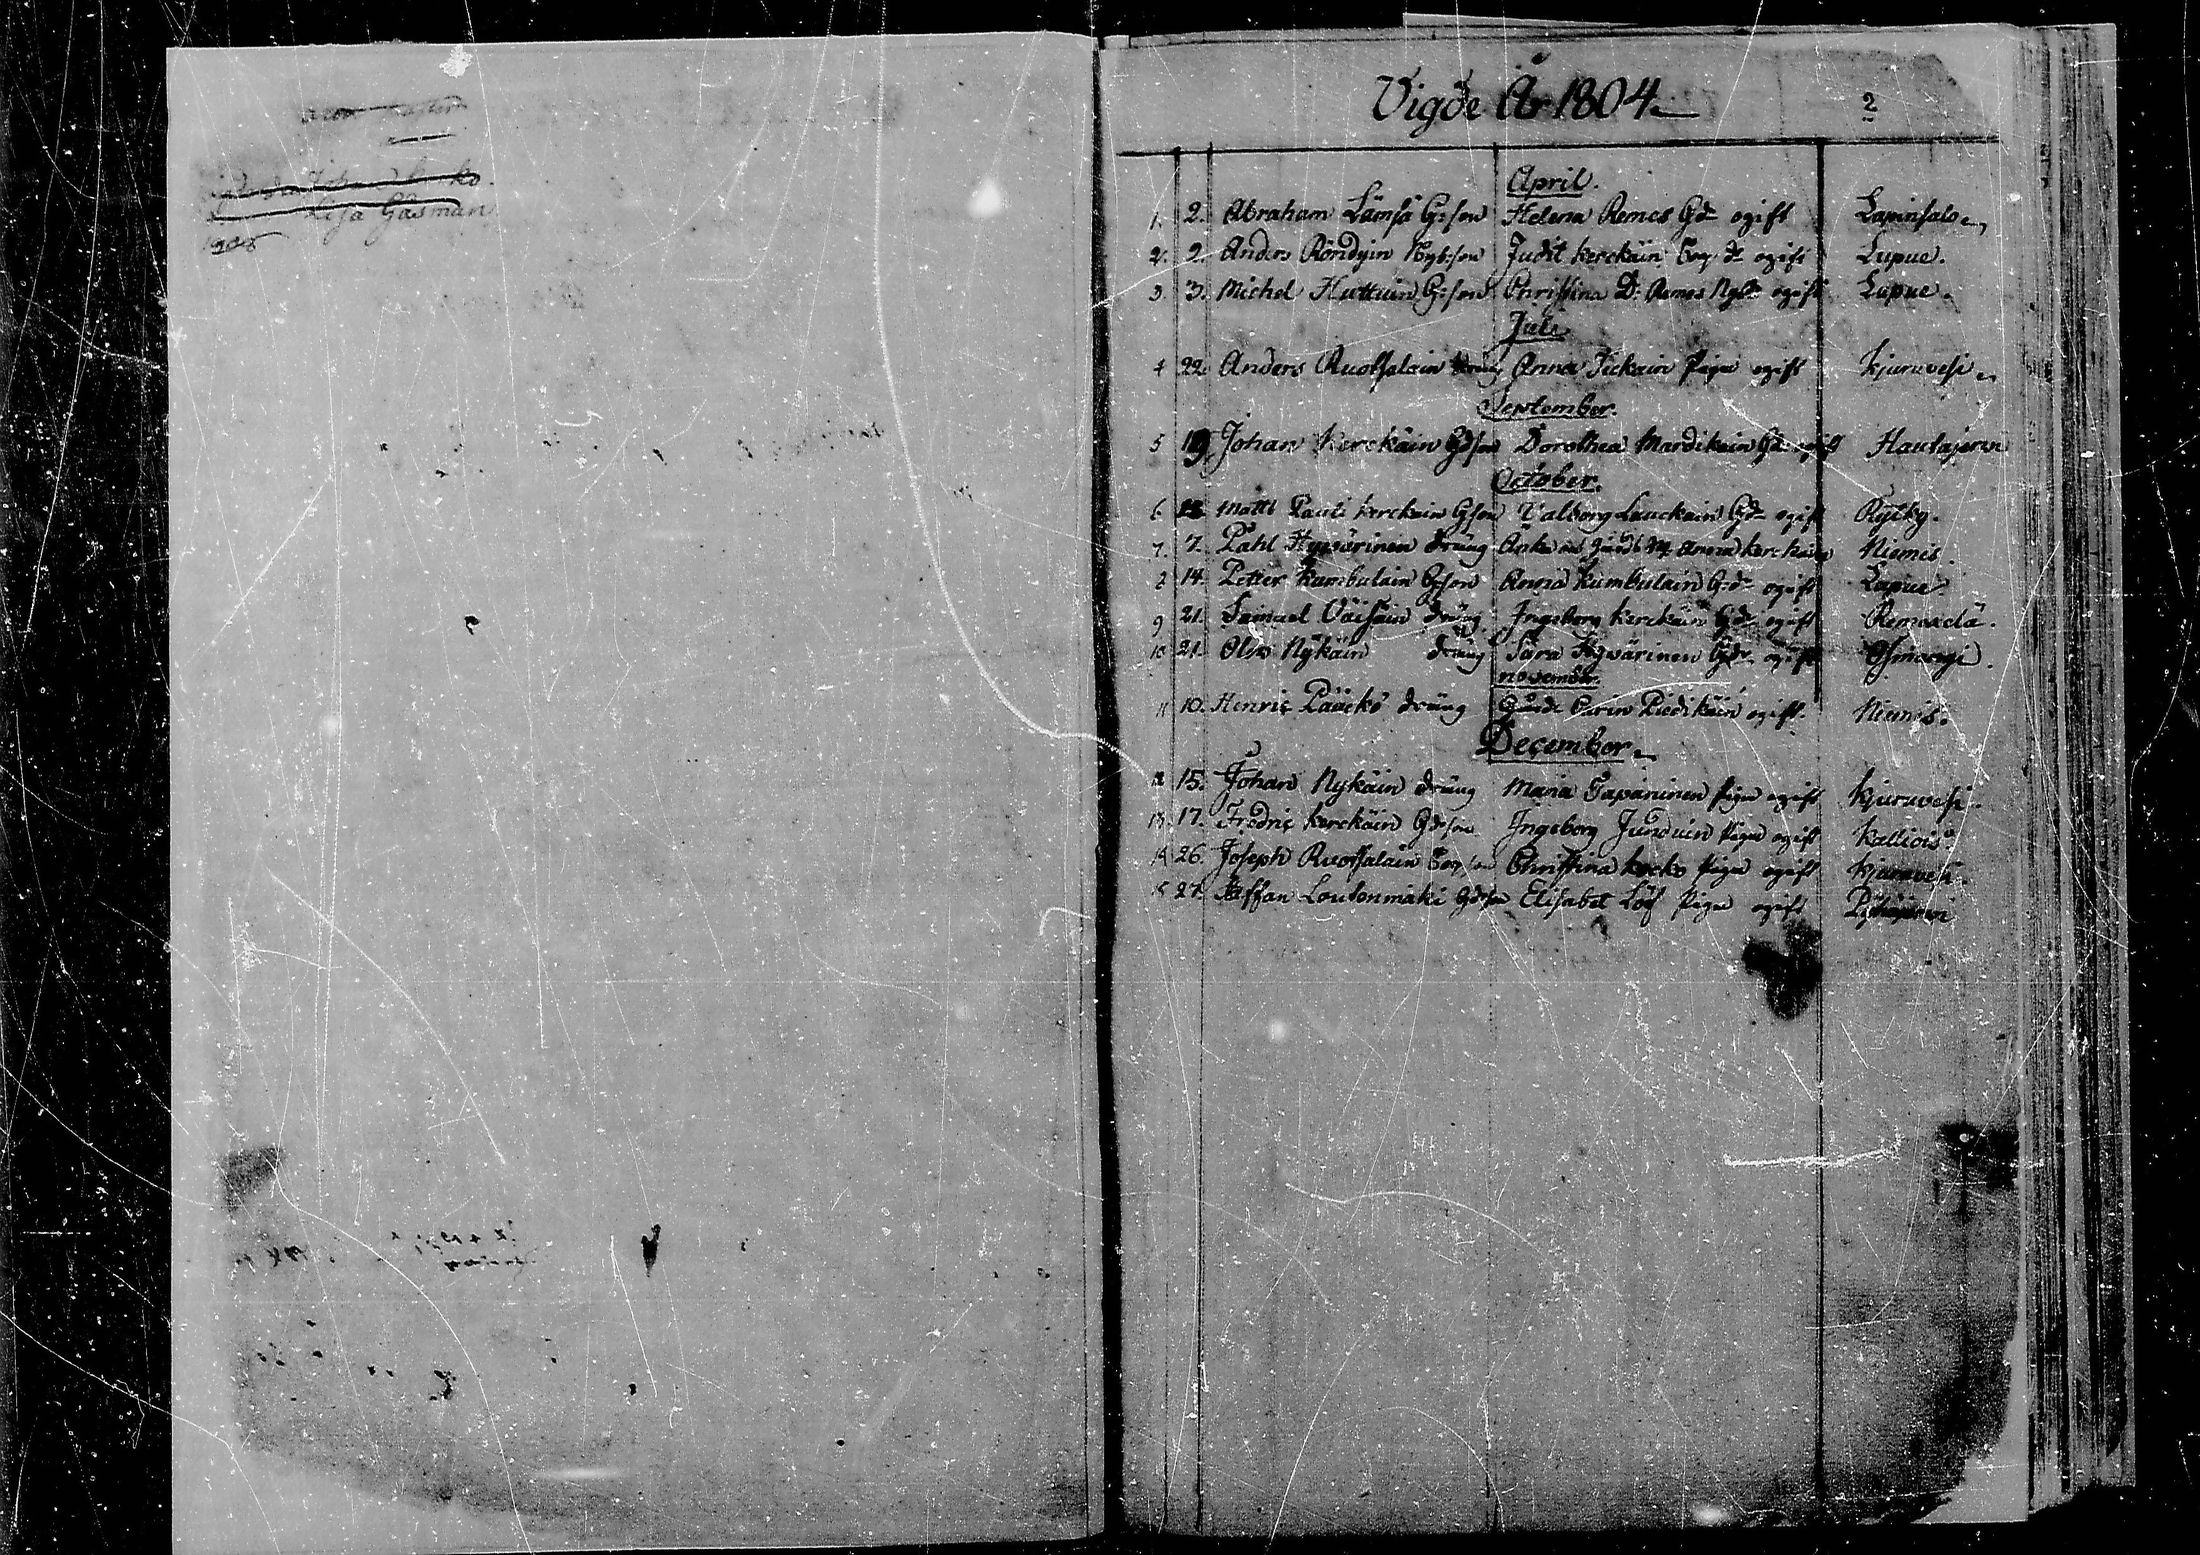 Lisa Gåsman
Vigde År 1804
2
April.
1. 2. Abraham Lämsä G:son Helena Remes Gd ogift Lapinsalo
2. 2. Anders Röndyin Nyb:son Judit Kerckäin d ogift Lapue.
3 3. Michel Huttuin G:son Christina D: Remes Nybd ogift Lapue.
Juli
4 22. Anders Ruotsalain dräng Anna Pigan ogift Kjuruvesi
September.
5 19. Johan Kerckäin Gdson Dorothea Mardikain Gd ogift Hautajerwi
October.
6 Matts Pauli Kerckäin Gson Valborg Lauckain Gd ogift Rytky.
7. 7. Påhl Hywärinen dräng Enkan Anna Kerckäin Niemis.
14. Petter Kumbulain G:son Anna Kumbulain G:d ogift Lapue
9 21. Samuel Väisäin dräng Ingeborg Kerckäin Gd ogift Remaxelä.
10 21. Olof Nykäin dräng Sara Hywärinen Gd ogift
November.
11 10. Henric Pääckö dräng Carin Piedikäin ogift. Niemis.
December.
12 15. Johan Nykäin dräng Maria Tapaninen Pigan ogift Kjuruvesi.
13. 17. Fredric Kerckäin Gdson Ingeborg Junduin Pigan ogift Kalliois.
14 26. Joseph Ruotsalain Christina Kocko Pigan ogift Kjuruvesi.
15 27. Staffan Loutonmäki Gdson Elisabet Löf Pigan ogift